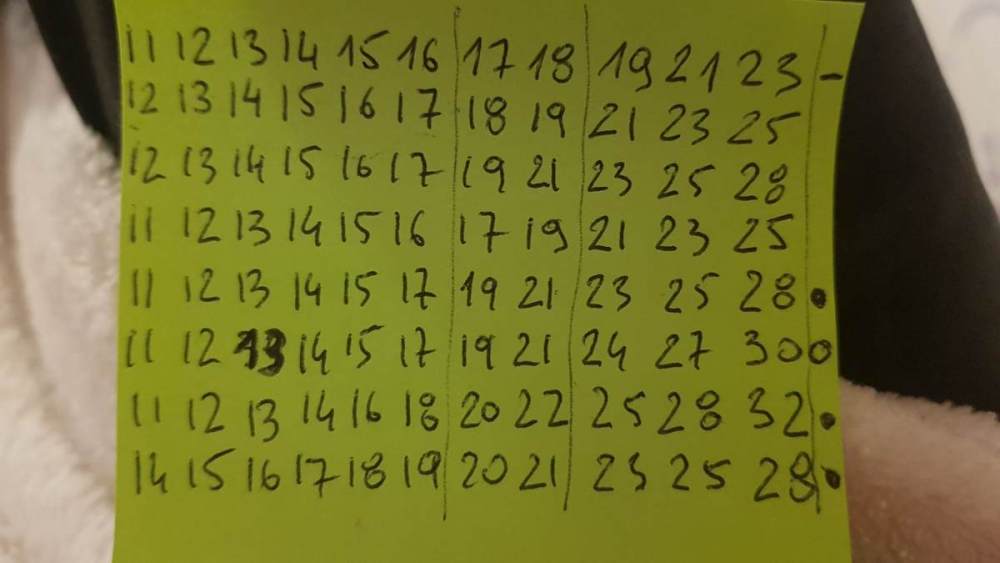 11 12 13 14 15 16 17 18 19 21 23 -
12 13 14 15 16 17 18 19 21 23 25
12 13 14 15 16 17 19 21 23 25 28
11 12 13 14 15 16 17 19 21 23 25
11 12 13 14 15 17 19 21 23 25 28 •
11 12 13 14 15 17 19 21 24 27 30 o
11 12 13 14 16 18 20 22 25 28 32 •
14 15 16 17 18 19 20 21 23 25 28 •